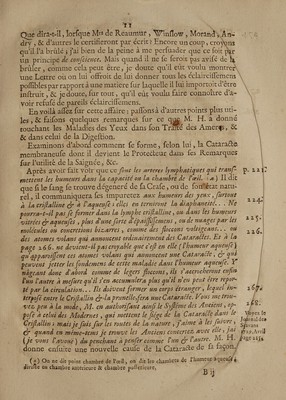 11
Que dira-t-il, lorsque Mrs de Reaumur, Winslow, Morand, An-
dry, & d'autres le certifieront par écrit? Encore un coup, croyons
qu'il l'a brûlé, j'ai bien de la peine à me persuader que ce soit par
un principe de conscience. Mais quand il ne se seroit pas avisé de la
brûler, comme cela peut être, je doute qu'il eût voulu montrer
une Lettre où on lui offroit de lui donner tous les éclaircissemens
possibles par rapport à une matiere sur laquelle il lui importoit d'être
instruit, & je doute, sur tout, qu'il eût voulu faire connoître d'a-
voir refusé de pareils éclaircissemens.
En voilà assez sur cette affaire; passons à d'autres points plus uti-
les, & faisons quelques remarques sur ce que M. H. a donné
touchant les Maladies des Yeux dans son Traité des
& dans celui de la Digestion.
Examinons d'abord comment se forme, selon lui, la Cataracte
membraneuse dont il devient le Protecteur dans ses Remarques
sur l'utilité de la Saignée, &c.
Après avoir fait voir que ce sont les arteres lymphatiques qui trans-
mettent les humeurs dans la capacité ou la chambre de l'œil. (a) Il dit
que si le sang se trouve dégeneré de sa Crase, ou de son état natu-
rel, il communiquera ses impuretez aux humeurs des yeux, surtout
à la cristalline & à l'aqueuse: elles en ternirent la diaphaneité. . . Ne
pourra-t-il pas se former dans la lymphe cristalline, ou dans les humeurs
vitrées & aqueuses, plus d'une sorte d'épaississemens, ou de nuages par les
molécules ou concretions bizarres, comme des floccons voltigeans . . . ou
des atomes volans qui annoncent ordinairement des Cataractes. Et à la
page 266. ne devient-il pas croyable que c'est en elle (l'humeur aqueuse)
qu'apparoissent ces atomes volans qui annoncent une Cataracte, & qui
peuvent jetter les fondemens de cette maladie dans l'humeur aqueuse. Y
nâgeant donc d'abord comme de legers floccons, ils s'accrocheront enfin
l'un à l'autre à mesure qu'il s'en accumulera plus qu'il n'en peut être repor-
té par la circulation. . . Ils doivent former un corps étranger, lequel in-
terposé entre le Cristallin & la prunelle fera une Cataracte. Vous me trou-
vez peu à la mode, M. en authorisant ainsi le Sistême des Anciens, op-
posé à celui des Modernes, qui mettent le siege de la Cataracte dans le
Cristallin: mais je suis sur les traits de la nature, j'aime à les suivre,
& quand en même-tems je trouve les Anciens concertez avec elle, j'ai
(je vous l'avoue) du penchant à penser comme l'un & l'autre. M. H.
donne ensuite une nouvelle cause de la Cataracte de sa façon,
(a) On ne dit point chambre de l'œil, on dit les chambres de l'humeur aqueuse,
divisée en chambre anterieure & chambre posterieure,
B ij
p. 221.
224.
225.
226.
267.
268.